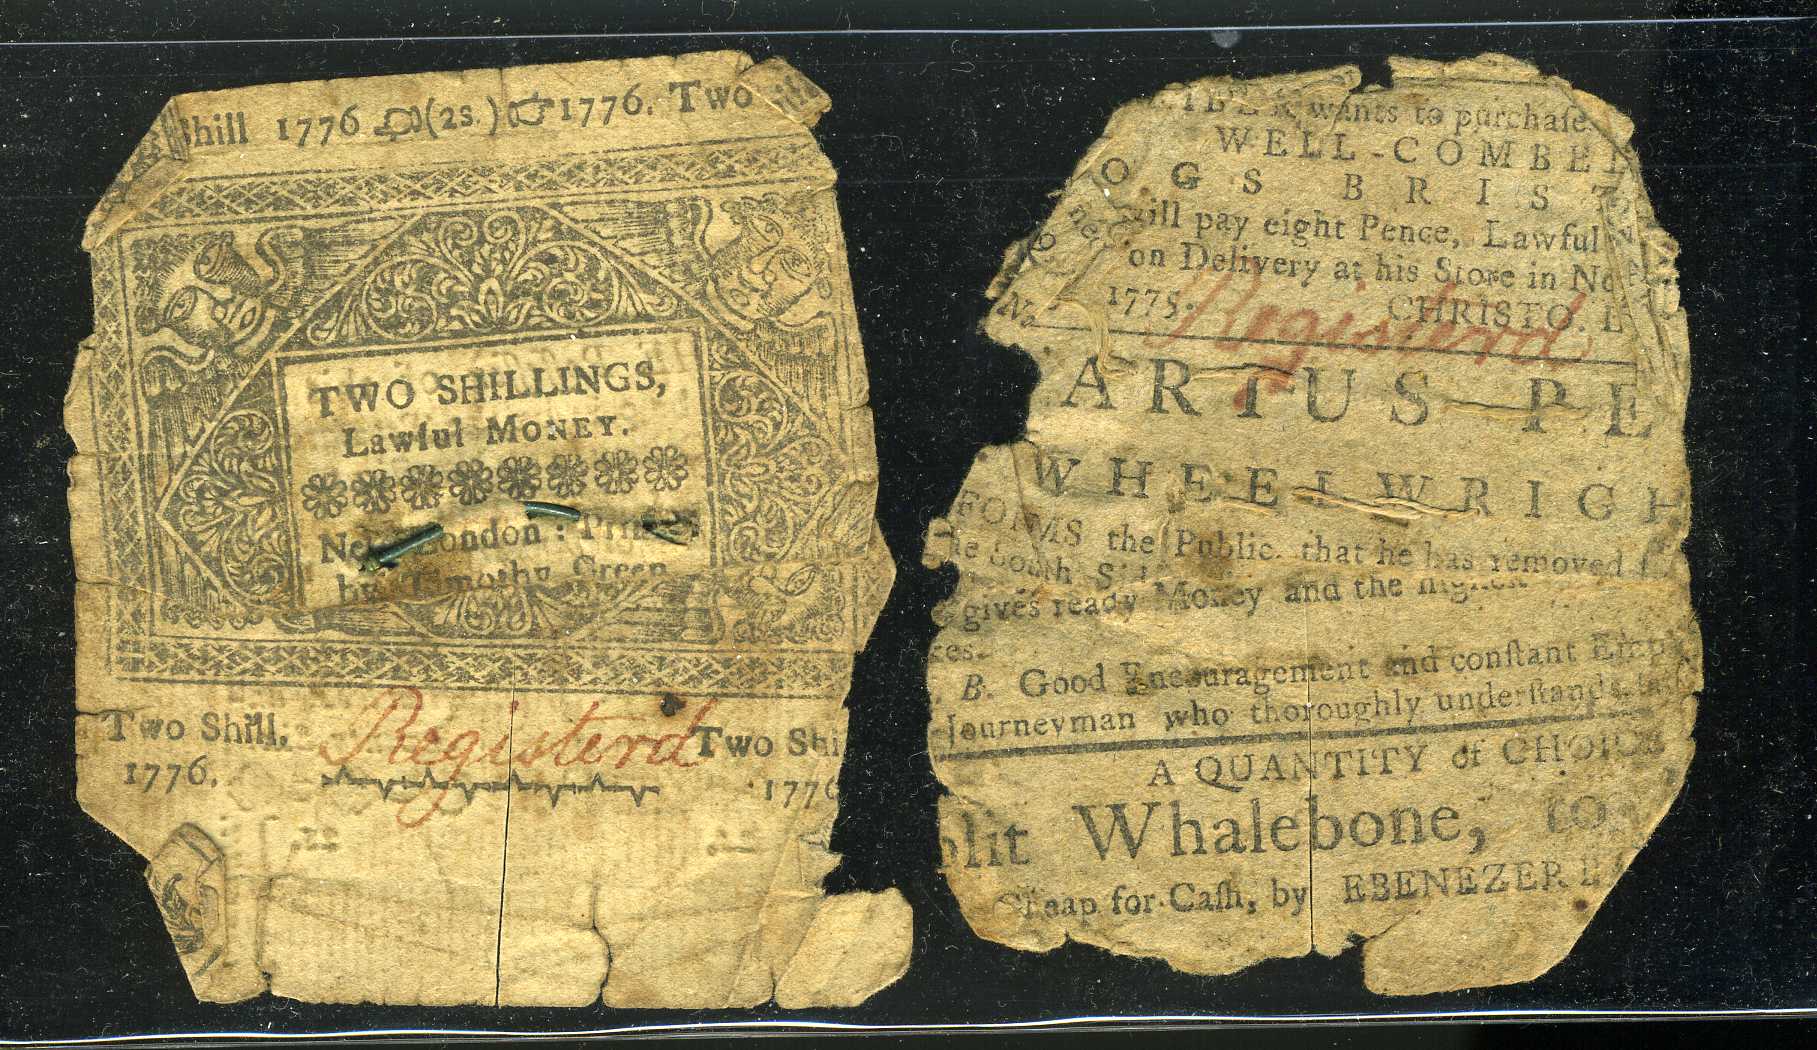 Shill 1776 (2s.) 1776. Two
TWO SHILLINGS,
Lawful MONEY.
New London: Printed
by Timothy Green
Registerd
Two Shill. Two Shi
1776. 1776
wants to purchaſe
WELL-COMBE
OGS BRIST
will pay eight Pence, Lawful
on Delivery at his Store in No
1775. CHRISTO. L
Registerd
ARTUS PE
WHEELWRIGH
FORMS the Public, that he has removed
he South Sid
gives ready Money and the higheſt
ces.
B. Good Encouragement and conſtant Emp
Journeyman who thoroughly underſtands
A QUANTITY of CHOICE
plit Whalebone, to
Cheap for Caſh, by EBENEZER